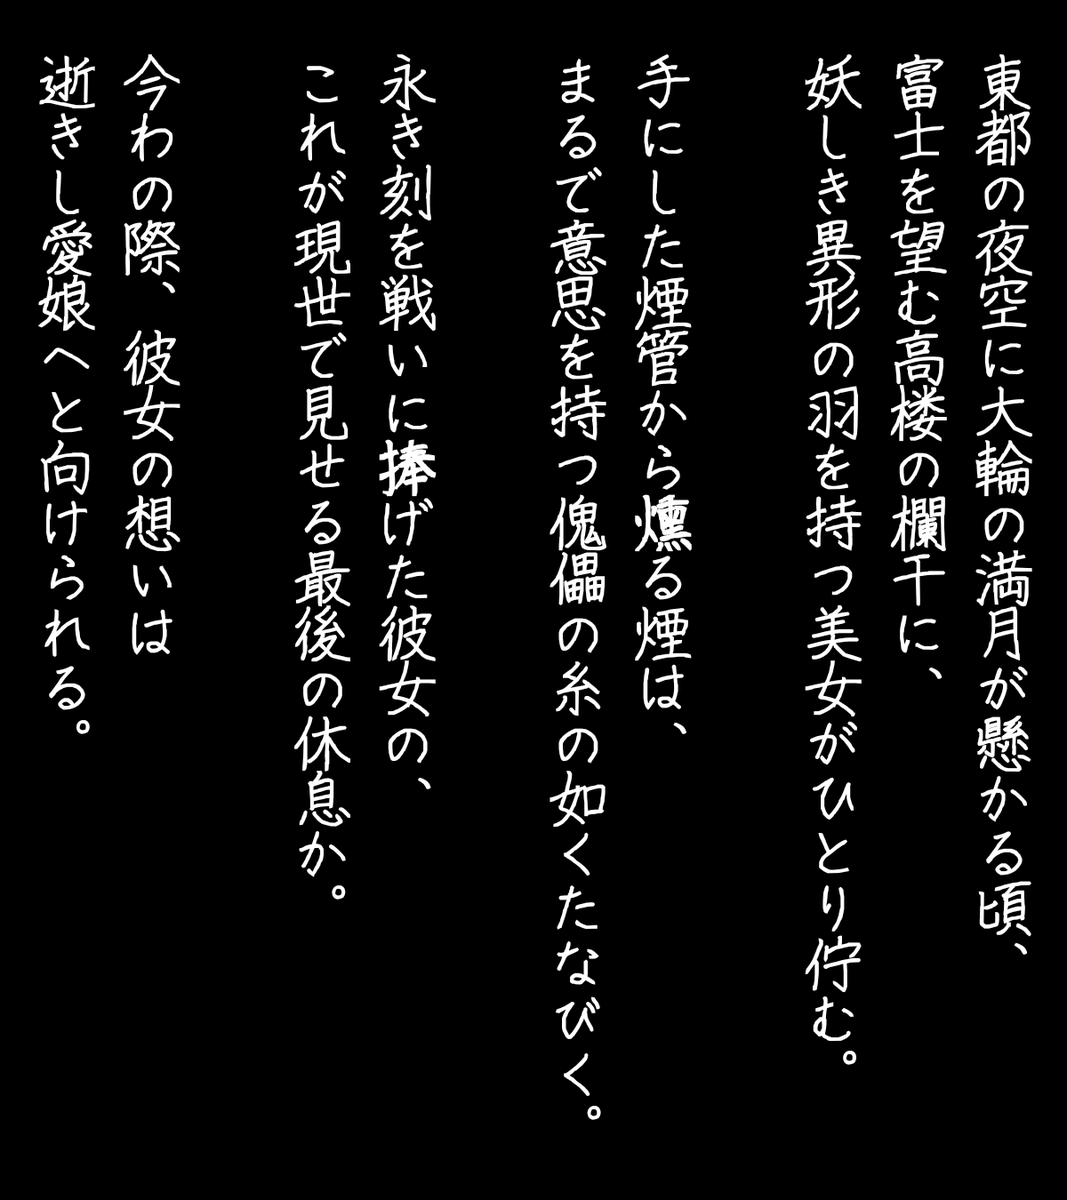 東都の夜空に大輪の満月が懸かる頃、
富士を望む高楼の欄干に、
妖しき異形の羽を持つ美女がひとり佇む。
手にした煙管から燻る煙は、
まるで意思を持つ傀儡の糸の如くたなびく。
永き刻を戦いに捧げた彼女の、
これが現世で見せる最後の休息か。
今わの際、彼女の想いは
逝きし愛娘へと向けられる。